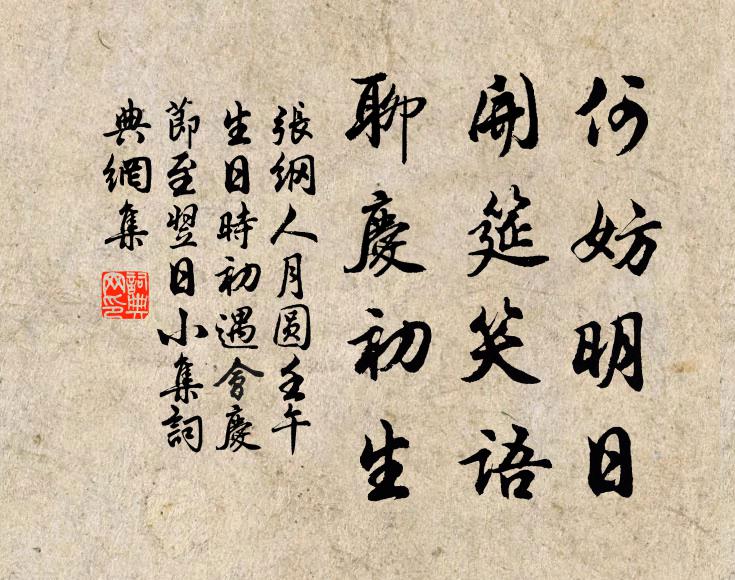 何妨明日
開筵笑語
聊慶初生
張綱人月圓壬午
生日時初遇會慶
節至翌日小集詞
典網集
詞典
网印